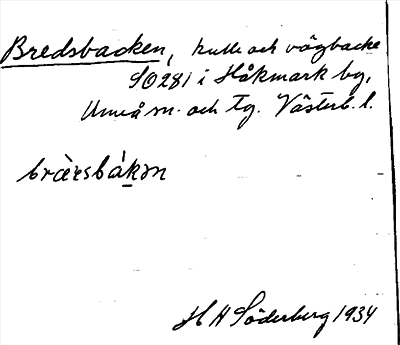 Bredsbacken, kulle och vägbacke
SO281 i Håkmark by,
Umeå sn. och tg. Västerb. l.
bràrsbákən
H H Söderberg 1934